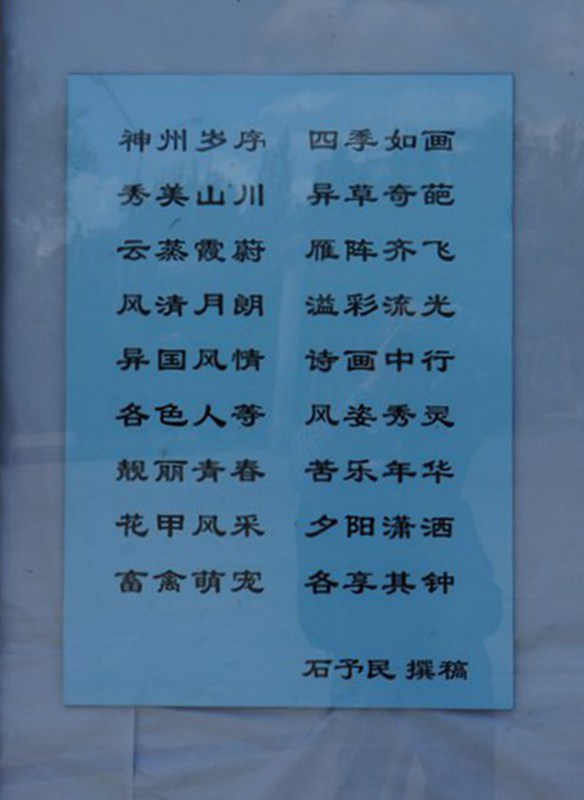 神州岁序 四季如画
秀美山川 异草奇葩
云蒸霞蔚 雁阵齐飞
风清月朗 溢彩流光
异国风情 诗画中行
各色人等 风姿秀灵
靓丽青春 苦乐年华
花甲风采 夕阳潇洒
畜禽萌宠 各享其钟
石予民 撰稿